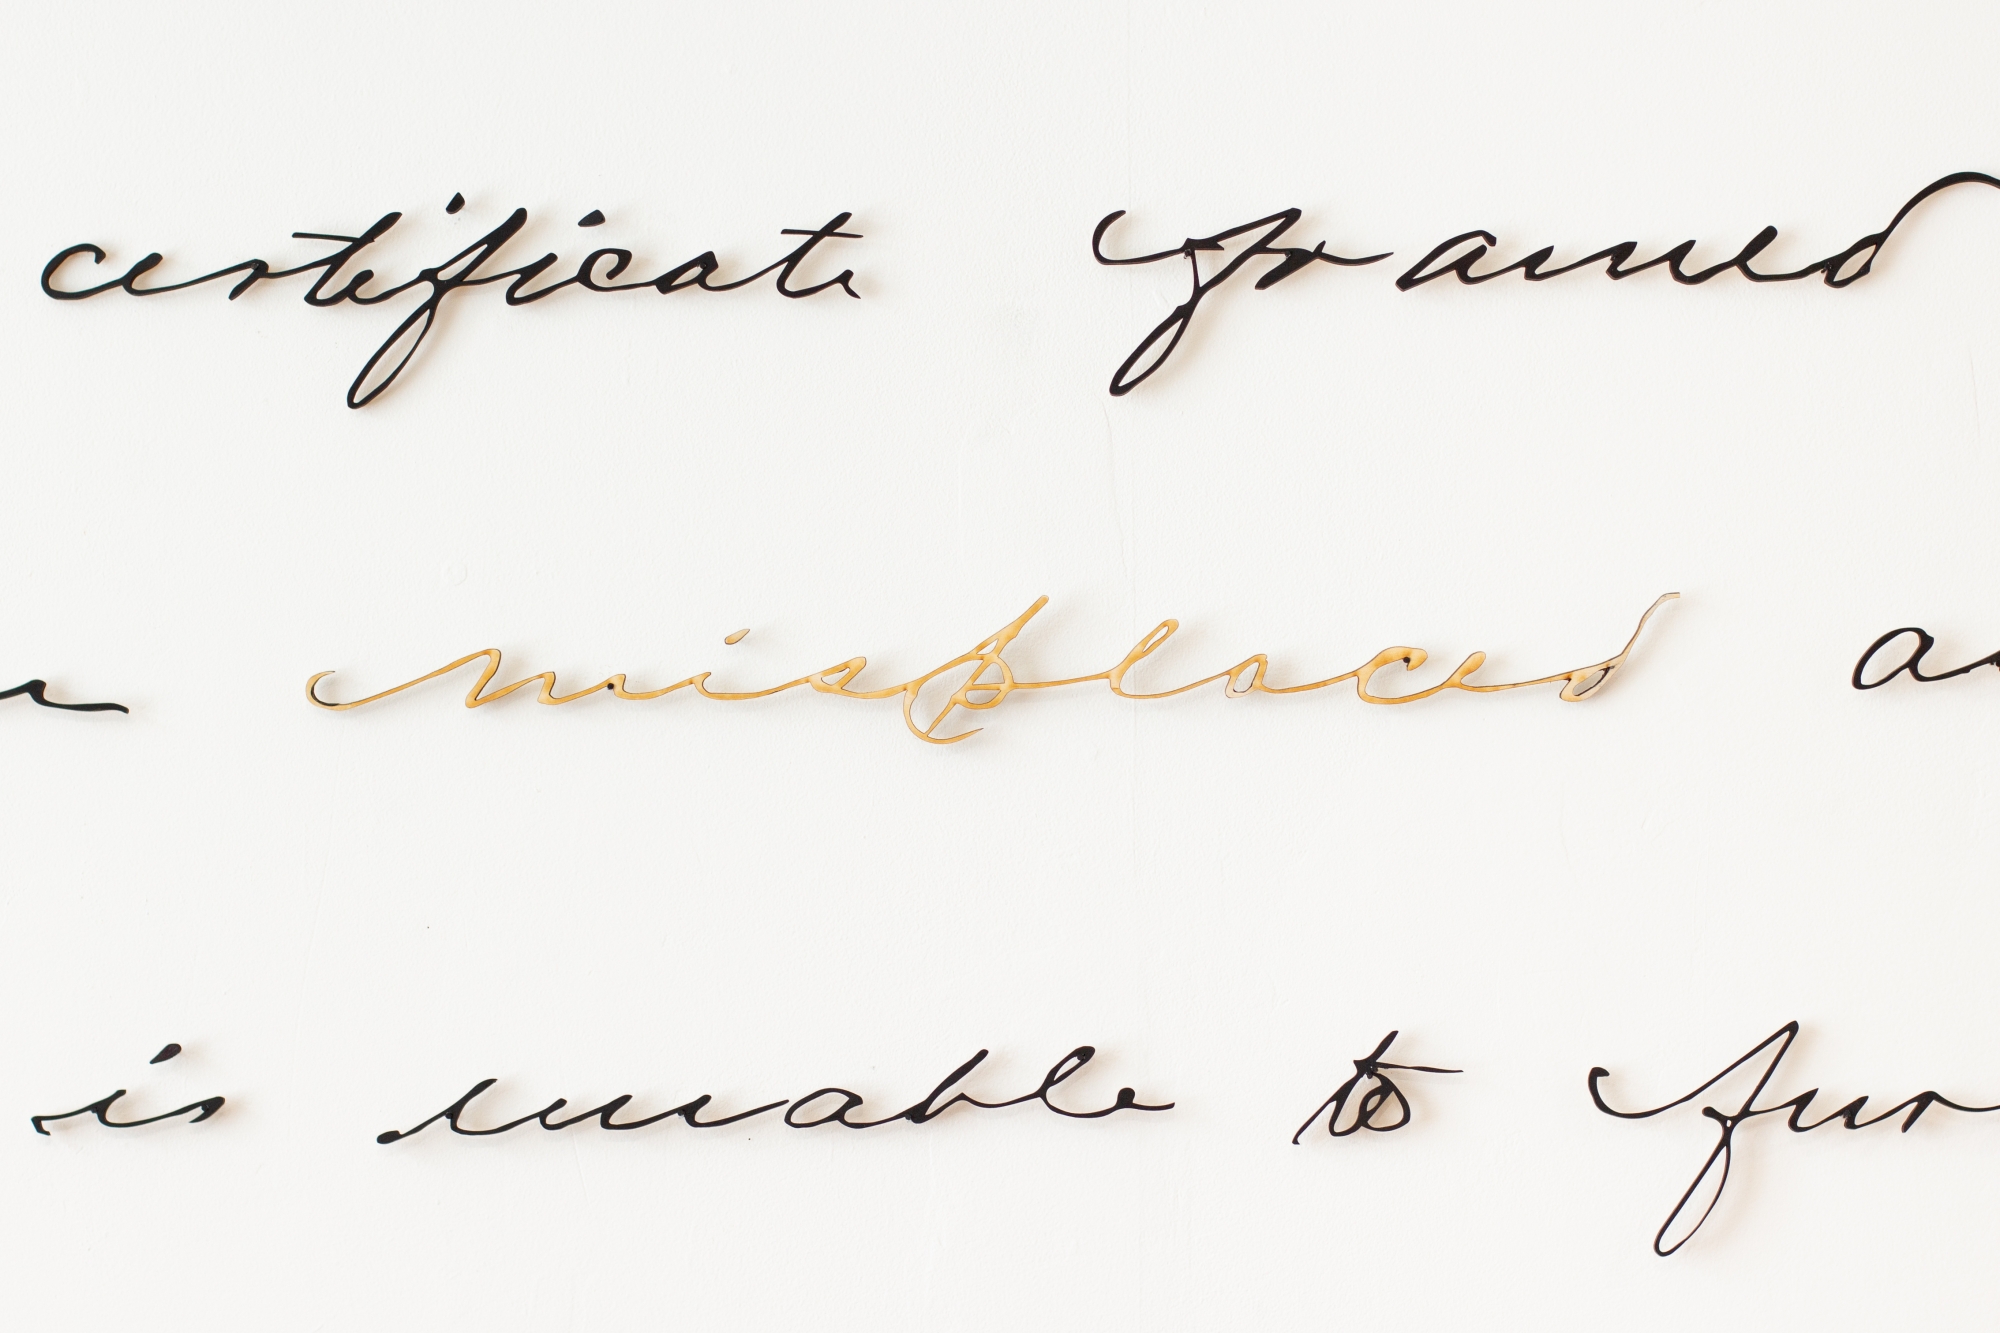 certificate framed
misplaced
is unable to